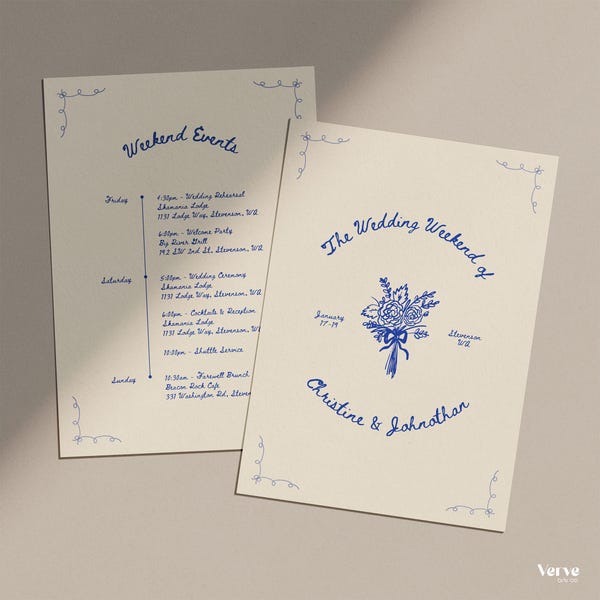 Weekend Events
Friday
4:30pm - Wedding Rehearsal
Skamania Lodge
1131 Lodge Way, Stevenson, WA
6:00pm - Welcome Party
Big River Grill
192 SW 2nd St, Stevenson, WA
Saturday
5:00pm - Wedding Ceremony
Skamania Lodge
1131 Lodge Way, Stevenson, WA
6:00pm - Cocktails & Reception
Skamania Lodge
1131 Lodge Way, Stevenson, WA
10:00pm - Shuttle Service
Sunday
10:30am - Farewell Brunch
Beacon Rock Cafe
331 Washington Rd, Steven
The Wedding Weekend of
January
17-19
Stevenson
WA
Christine & Johnathan
Verve